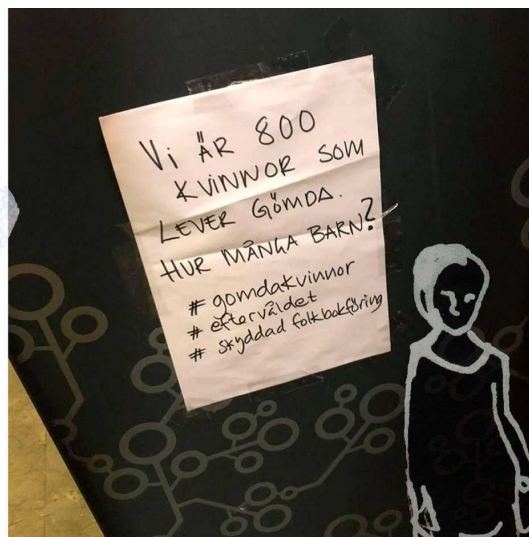 Vi ÄR 800
KVINNOR SOM
LEVER GÖMDA.
HUR MÅNGA BARN?
# gomdakvinnor
# eftervåldet
# skyddad folkbokföring